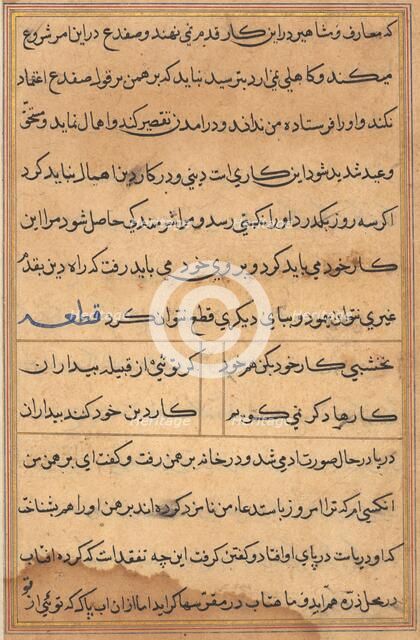 که معارف و مشاهیر در این کار قدم نمی نهند و صفدع در این امر شروع
میکند و کاهلی نمی ارد بترسید نباید که برهمن بر قول صفدع اعتماد
نکند و او را فرستاده من نداند و در امدن تقصیر کند و اهمال نماید و مستحق
وعید شدید شود این کاری است دینی و در کار دین اهمال نباید کرد
اگر سه روز یکدم رد او را کسی رسد و مرا شرمندگی حاصل شود مرا این
کار خود می باید کرد و بر وی خود می باید رفت که راه دین بقدم
غیری نتوان پیمود و بپای دیگری قطع نتوان کرد قطعه
نخشبی کار خود کن هم خود
کر توئی از قبیله بیداران
کارهاء دکر نمی کویم
کار دین خود کنند بیداران
دریا در حال صورت ادمی شد و در خانه برهمن رفت و گفت ای برهمن من
انکسی ام که ترا امروز باستدعاء من نامزد کرده اند برهمن او را هم بشناخت
که او دریاست در پای او افتاد و کفتن کرفت این چه تفقد است که کرده افتاب
در محل ذره هم اید و ماهتاب در مقر سها کراید اما از ان اب پاک که توئی از تو
© Heritage
Heritage
Heritage